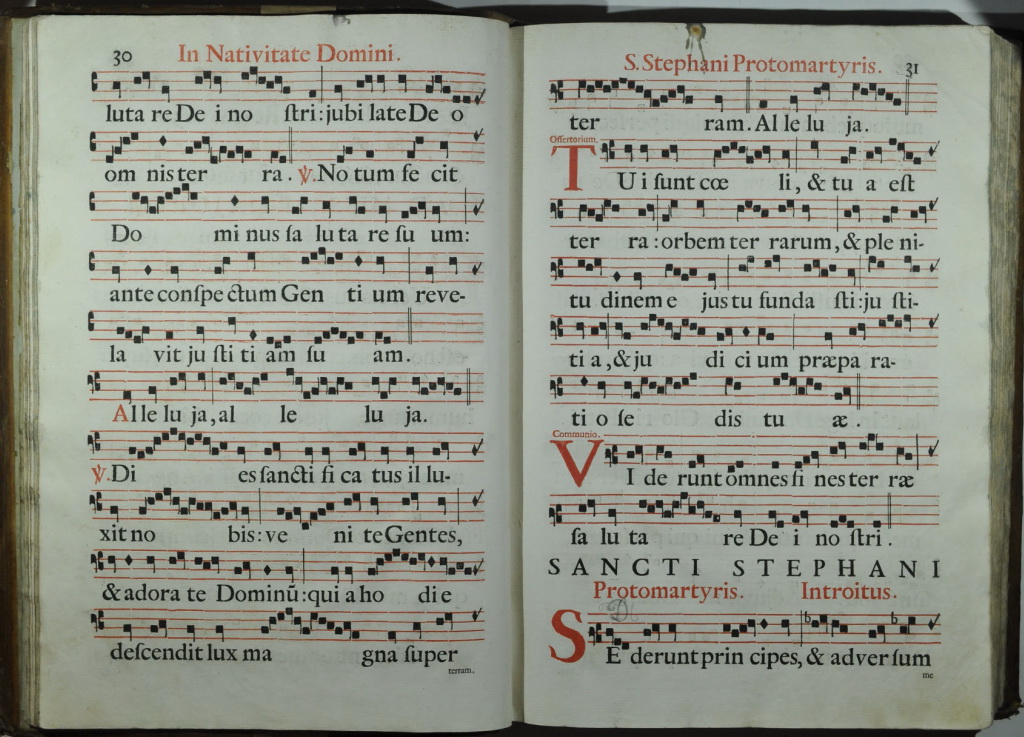 30 In Nativitate Domini.
luta re De i no ſtri: jubi late De o
om nis ter ra. ℣. No tum fe cit
Do mi nus ſa lu ta re ſu um:
ante conſpe ctum Gen ti um reve-
la vit ju ſti ti am ſu am.
Alle lu ja, al le lu ja.
℣. Di es ſancti fi ca tus il lu-
xit no bis: ve ni te Gentes,
& adora te Dominũ: qui a ho di e
deſcendit lux ma gna ſuper
terram.
S. Stephani Protomartyris. 31
ter ram. Al le lu ja.
Offertorium.
TU i ſunt cœ li, & tu a eſt
ter ra: orbem ter rarum, & ple ni-
tu dinem e jus tu funda ſti: ju ſti-
ti a, & ju di ci um præpa ra-
ti o ſe dis tu æ.
Communio.
VI de runt omnes fi nes ter ræ
ſa lu ta re De i no ſtri.
SANCTI STEPHANI
Protomartyris. Introitus.
SE derunt prin cipes, & adver ſum
me